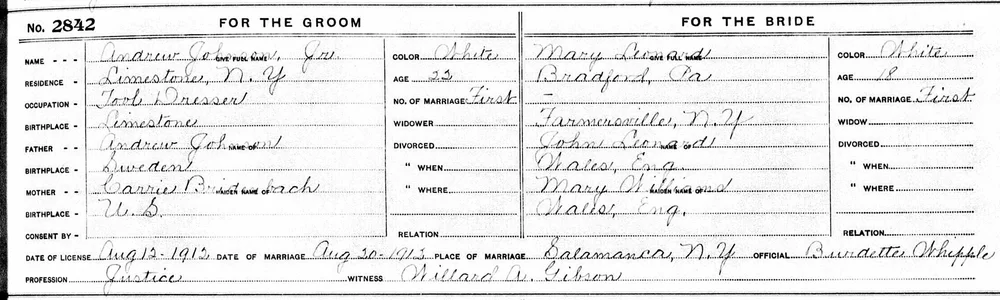 No. 2842 FOR THE GROOM FOR THE BRIDE
NAME - - - Andrew Johnson, Jr. GIVE FULL NAME COLOR White Mary Leonard GIVE FULL NAME COLOR White
RESIDENCE - - Limestone, N. Y AGE 22 Bradford, Pa AGE 18
OCCUPATION - Tool Dresser NO. OF MARRIAGE First - NO. OF MARRIAGE First
BIRTHPLACE - Limestone WIDOWER Farmersville, N. Y WIDOW
FATHER - - Andrew Johnson NAME OF DIVORCED John Leonard NAME OF DIVORCED
BIRTHPLACE - Sweden " WHEN Wales, Eng. " WHEN
MOTHER - - Carrie MAIDEN NAME OF " WHERE Mary Williams MAIDEN NAME OF " WHERE
BIRTHPLACE - U. S. Wales, Eng.
CONSENT BY - RELATION RELATION
DATE OF LICENSE Aug 12-1912 DATE OF MARRIAGE Aug 20-1912 PLACE OF MARRIAGE Salamanca, N. Y OFFICIAL Burdette Whipple
PROFESSION Justice WITNESS Willard A. Gibson